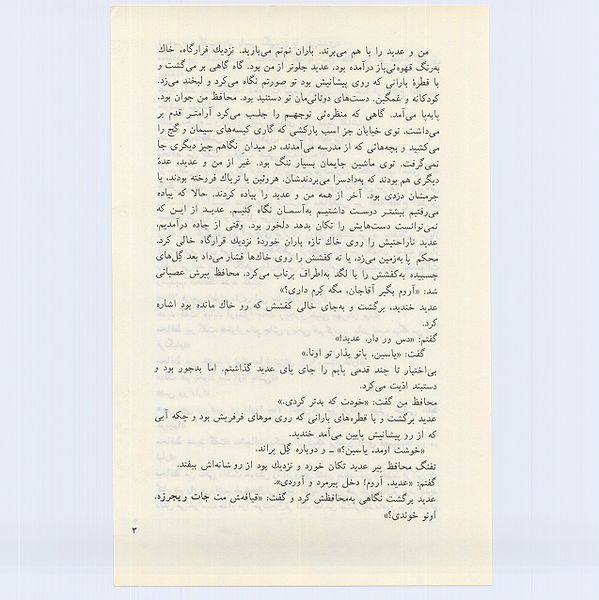 من و عدید را با هم می‌برند. باران نم‌نم می‌بارید. نزدیك قرارگاه، خاك
به‌رنگ قهوه‌ئی‌باز درآمده بود. عدید جلوتر از من بود. گاه گاهی بر می‌گشت و
با قطرهٔ بارانی که روی پیشانیش بود تو صورتم نگاه می‌کرد و لبخند می‌زد.
کودکانه و غمگین. دست‌های دوتائی‌مان تو دستبند بود. محافظ من جوان بود.
پابه‌پا می‌آمد. گاهی که منظره‌ئی توجهم را جلب می‌کرد آرامتر قدم بر
می‌داشت. توی خیابان جز اسب بارکشی که گاری کیسه‌های سیمان و گچ را
می‌کشید و بچه‌هائی که از مدرسه می‌آمدند، در میدان ِ نگاهم چیز دیگری جا
نمی‌گرفت. توی ماشین جایمان بسیار تنگ بود. غیر از من و عدید، عدهٔ
دیگری هم بودند که به‌دادسرا می‌بردندشان. هروئین یا تریاك فروخته بودند، یا
جرمشان دزدی بود. آخر از همه من و عدید را پیاده کردند. حالا که پیاده
می‌رفتیم بیشتر دوست داشتیم به‌آسمان نگاه کنیم. عدید از این که
نمی‌توانست دست‌هایش را تکان بدهد دلخور بود. وقتی از جاده درآمدیم،
عدید ناراحتیش را روی خاك تازه باران خوردهٔ نزدیك قرارگاه خالی کرد.
محکم پا‌به‌زمین می‌زد، یا نه کفشش را روی خاك‌ها فشار می‌داد بعد گِل‌های
چسبیده به‌کفشش را با لگد به‌اطراف پرتاب می‌کرد. محافظ پیرش عصبانی
شد: «آروم بگیر آقاجان، مگه کِرم داری؟»
عدید خندید، برگشت و به‌جای خالی کفشش که رو خاك مانده بود اشاره
کرد.
گفتم: «دس ور دار، عدید!»
گفت: «یاسین، پاتو بذار تو اونا.»
بی‌اختیار تا چند قدمی پایم را جای پای عدید گذاشتم. اما بدجور بود و
دستبند اذیت می‌کرد.
محافظ من گفت: «خودت که بدتر کردی.»
عدید برگشت و با قطره‌های بارانی که روی موهای فرفریش بود و چکه آبی
که از رو پیشانیش پایین می‌آمد خندید.
«خوشت اومد، یاسین؟» ــ و دوباره گِل پراند.
تفنگ محافظ پیر عدید تکان خورد و نزدیك بود از رو شانه‌اش بیفتد.
گفتم: «عدید، آروم! دخل پیرمرد و آوردی».
عدید برگشت نگاهی به‌محافظش کرد و گفت: «قیافه‌ش مث جات ریجرزه.
اونو خوندی؟»
۳